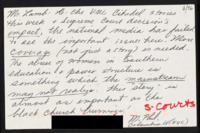 Mr. Lamb: In the VMI Citadel stories
this week & Supreme Court decision's
impact, the national media has failed
to see the important issues here. More
coverage (not just a story) is needed.
The abuse of women in Southern
education & power structure is
something which the mainstream
may not realize. This story is
almost as important as the
black church burnings.
S. Courts
M. Phil
Columbia